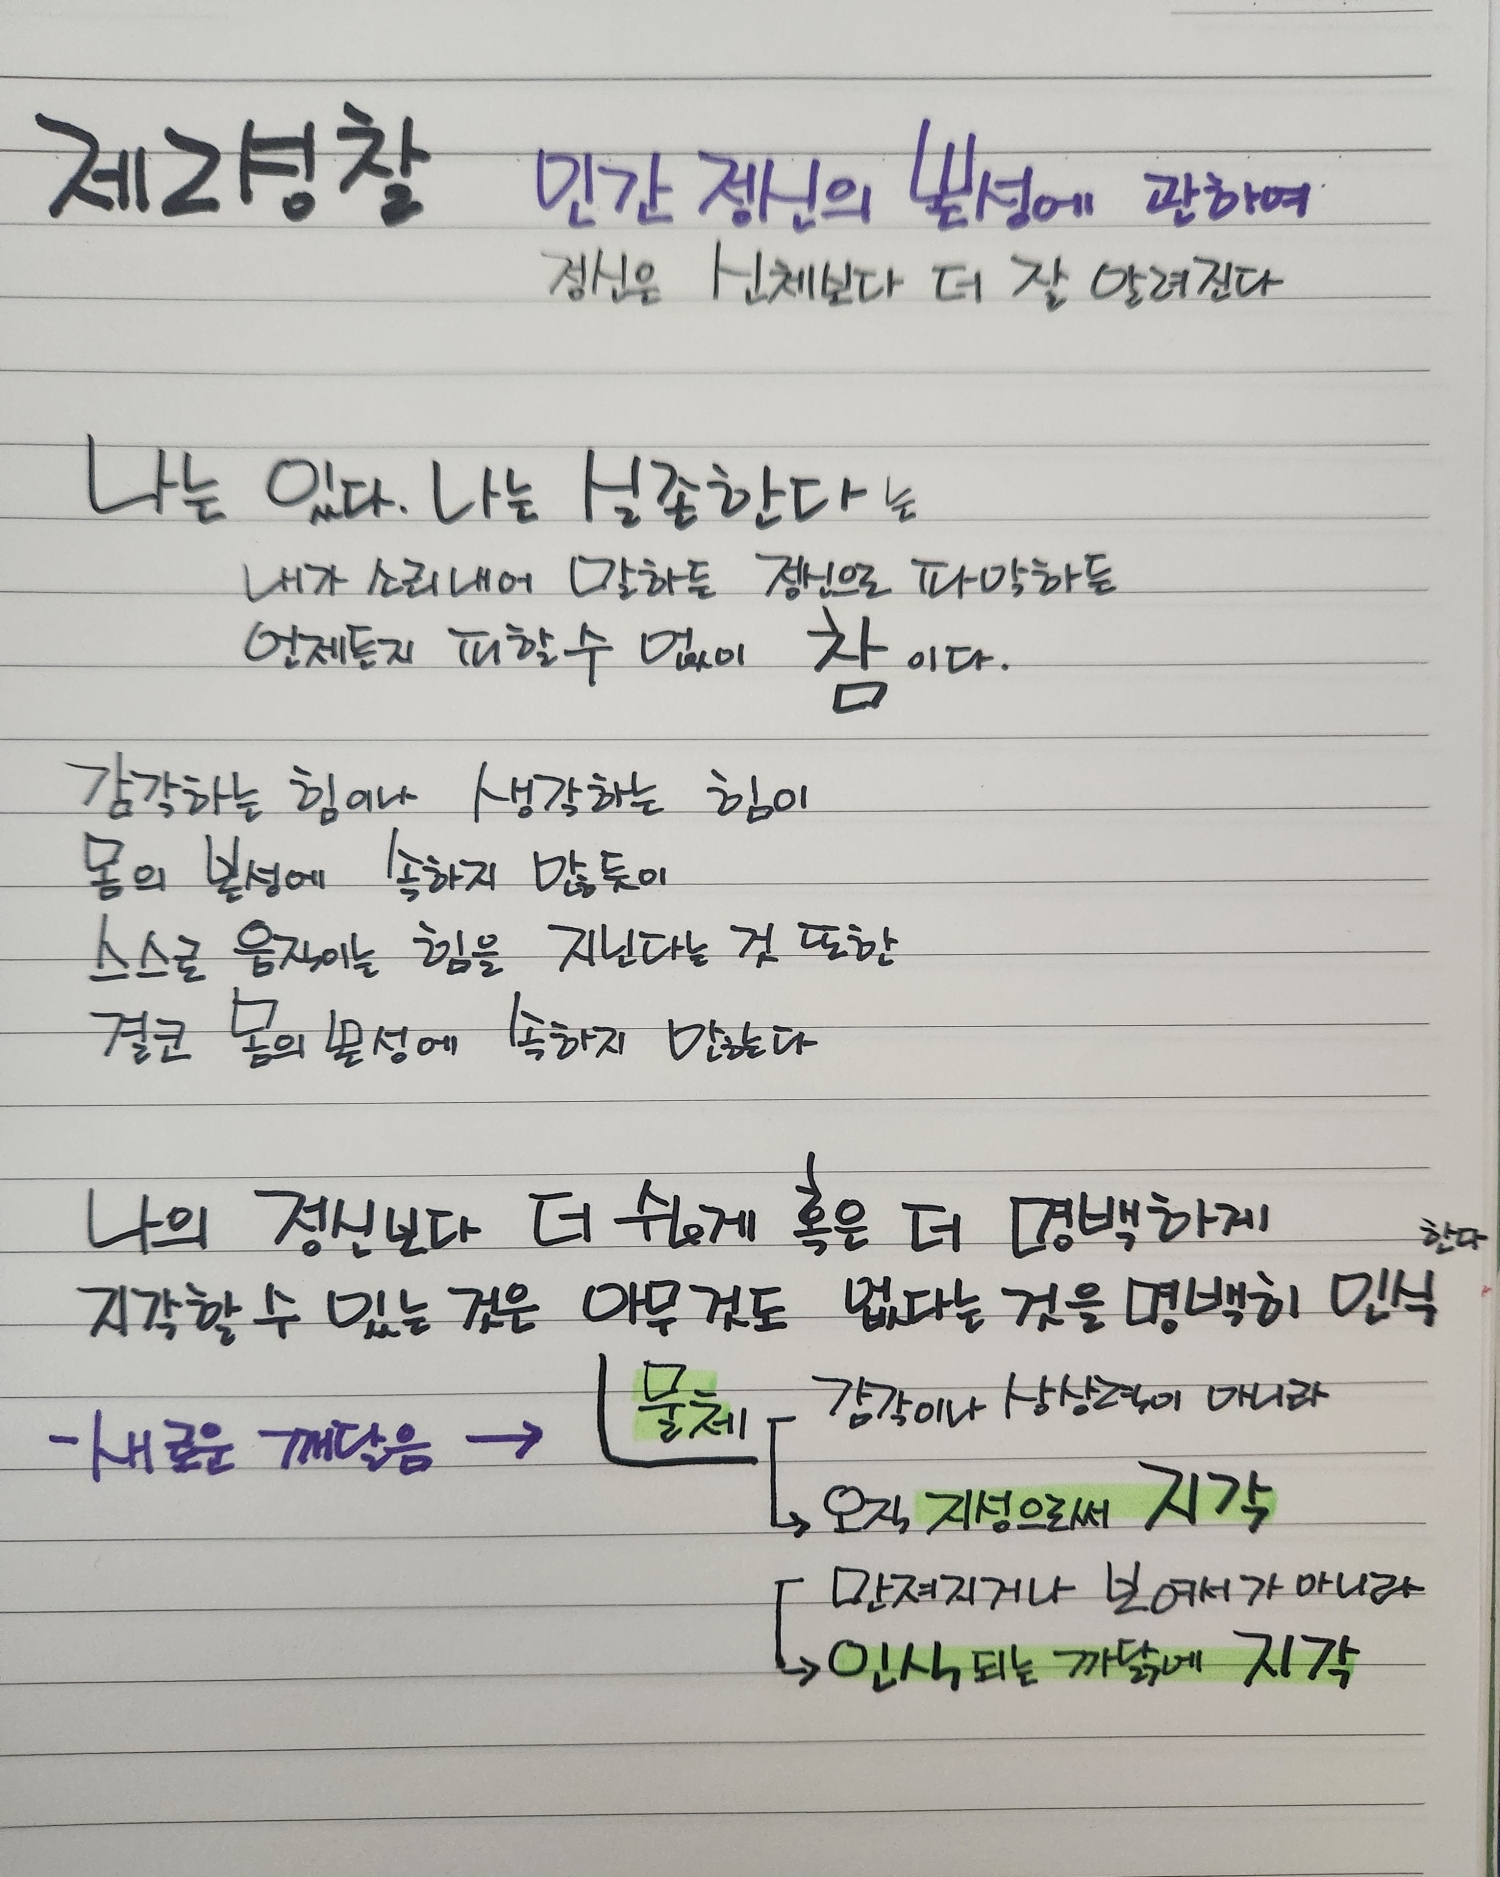 제2성찰 인간 정신의 본성에 관하여
정신은 신체보다 더 잘 알려진다
나는 있다. 나는 실존한다 는
내가 소리내어 말하든 정신으로 파악하든
언제든지 피할 수 없이 참 이다.
감각하는 힘이나 생각하는 힘이
몸의 본성에 속하지 않듯이
스스로 움직이는 힘을 지닌다는 것 또한
결코 몸의 본성에 속하지 않는다
나의 정신보다 더 쉽게 혹은 더 명백하게
지각할 수 있는 것은 아무것도 없다는 것을 명백히 인식 한다
물체 감각이나 상상력이 아니라
-새로운 깨달음 →
오직 지성으로써 지각
만져지거나 보여서가 아니라
인식되는 까닭에 지각